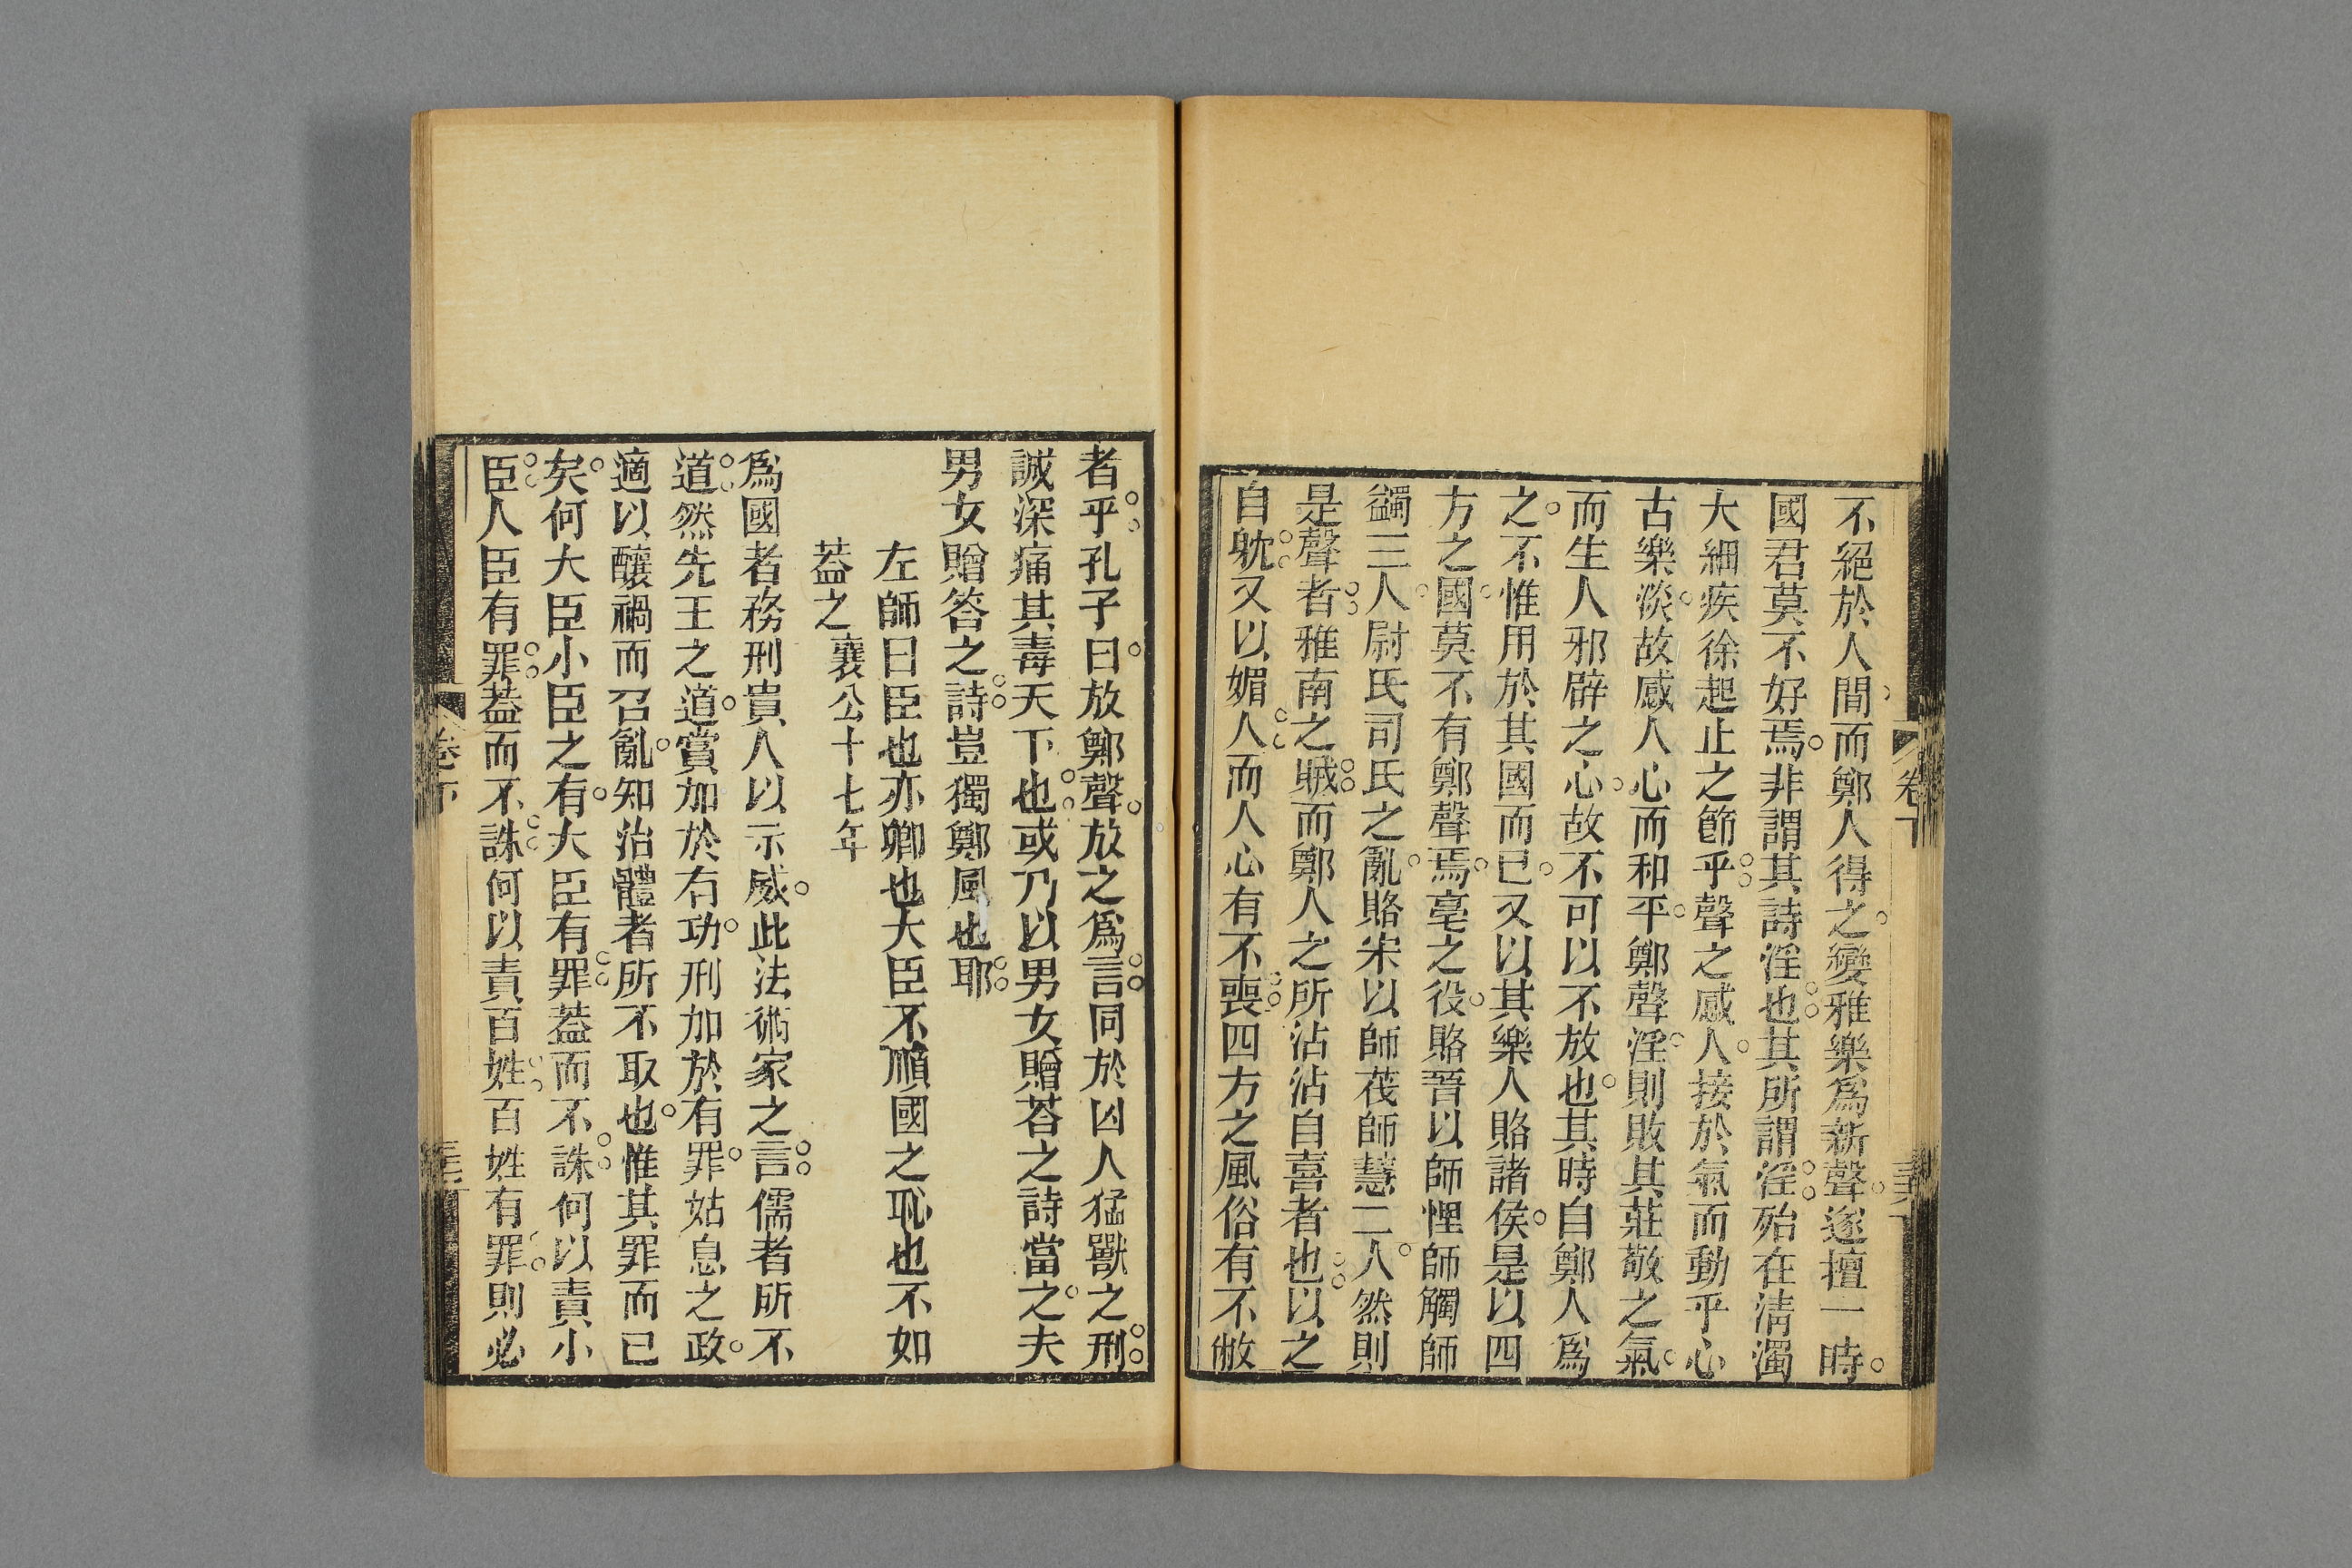 不絕於人間而鄭人得之變雅樂爲新聲遂擅一時
國君莫不好焉非謂其詩淫也其所謂淫殆在淸濁
大細疾徐起止之節乎聲之感人接於氣而動乎心
古樂淡故感人心而和平鄭聲淫則敗其莊敬之氣
而生人邪辟之心故不可以不放也其時自鄭人爲
之不惟用於其國而已又以其樂人賂諸侯是以四
方之國莫不有鄭聲焉亳之役賂晉以師悝師觸師
蠲三人尉氏司氏之亂賂宋以師茷師慧二人然則
是聲者雅南之賊而鄭人之所沾沾自喜者也以之
自躭又以媚人而人心有不喪四方之風俗有不敝
卷下
者乎孔子曰放鄭聲放之爲言同於凶人猛獸之刑
誠深痛其毒天下也或乃以男女贈荅之詩當之夫
男女贈答之詩豈獨鄭風也耶
左師曰臣也亦卿也大臣不順國之恥也不如
葢之 襄公十七年
爲國者務刑貴人以示威此法術家之言儒者所不
道然先王之道賞加於有功刑加於有罪姑息之政
適以釀禍而召亂知治體者所不取也惟其罪而已
矣何大臣小臣之有大臣有罪葢而不誅何以責小
臣人臣有罪葢而不誅何以責百姓百姓有罪則必
卷下